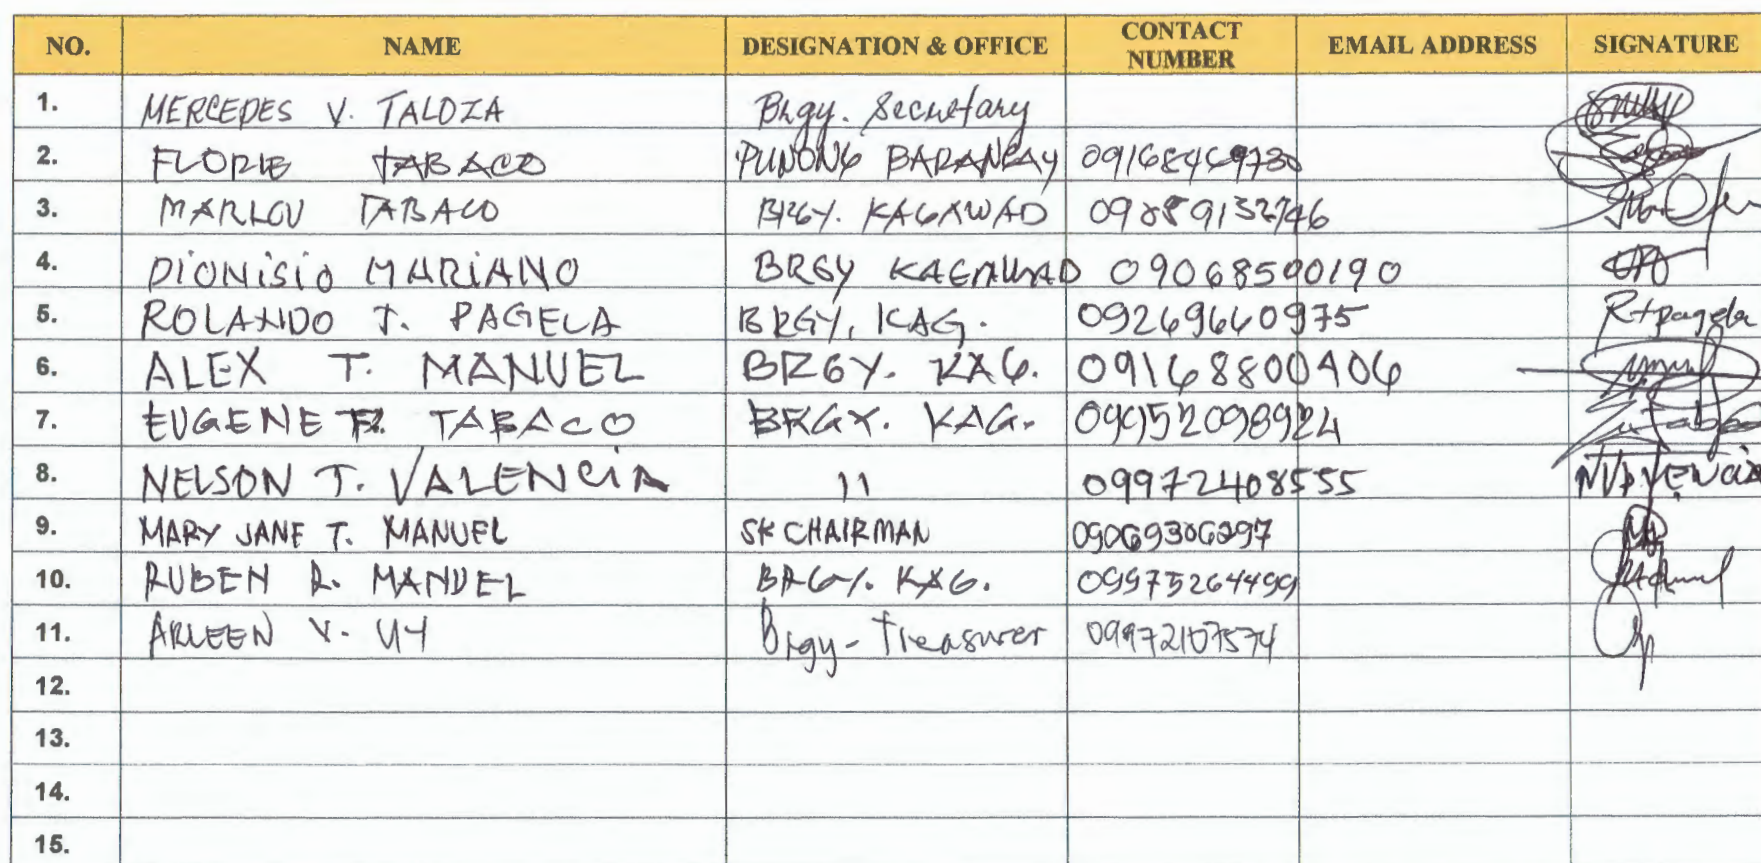 NO. NAME DESIGNATION & OFFICE CONTACT NUMBER EMAIL ADDRESS SIGNATURE
1. MERCEDES V. TALOZA Brgy. Secretary
2. FLORIE TABACO PUNONG BARANGAY
3. MARLOU TABACO BRGY. KAGAWAD 09289132746
4. DIONISIO MARIANO BRGY KAGAWAD 09068500190
5. ROLANDO T. PAGELA BRGY. KAG. 09269660975 Rtpagela
6. ALEX T. MANUEL BRGY. KAG. 09168800406
7. EUGENE TABACO BRGY. KAG. 09952098924
8. NELSON T. VALENCIA 11 09972408555
9. MARY JANE T. MANUEL SK CHAIRMAN 09069306297
10. RUBEN R. MANUEL BRGY. KAG. 09975264499
11. ARLEEN V. UY Brgy-Treasurer 09972107574
12.
13.
14.
15.